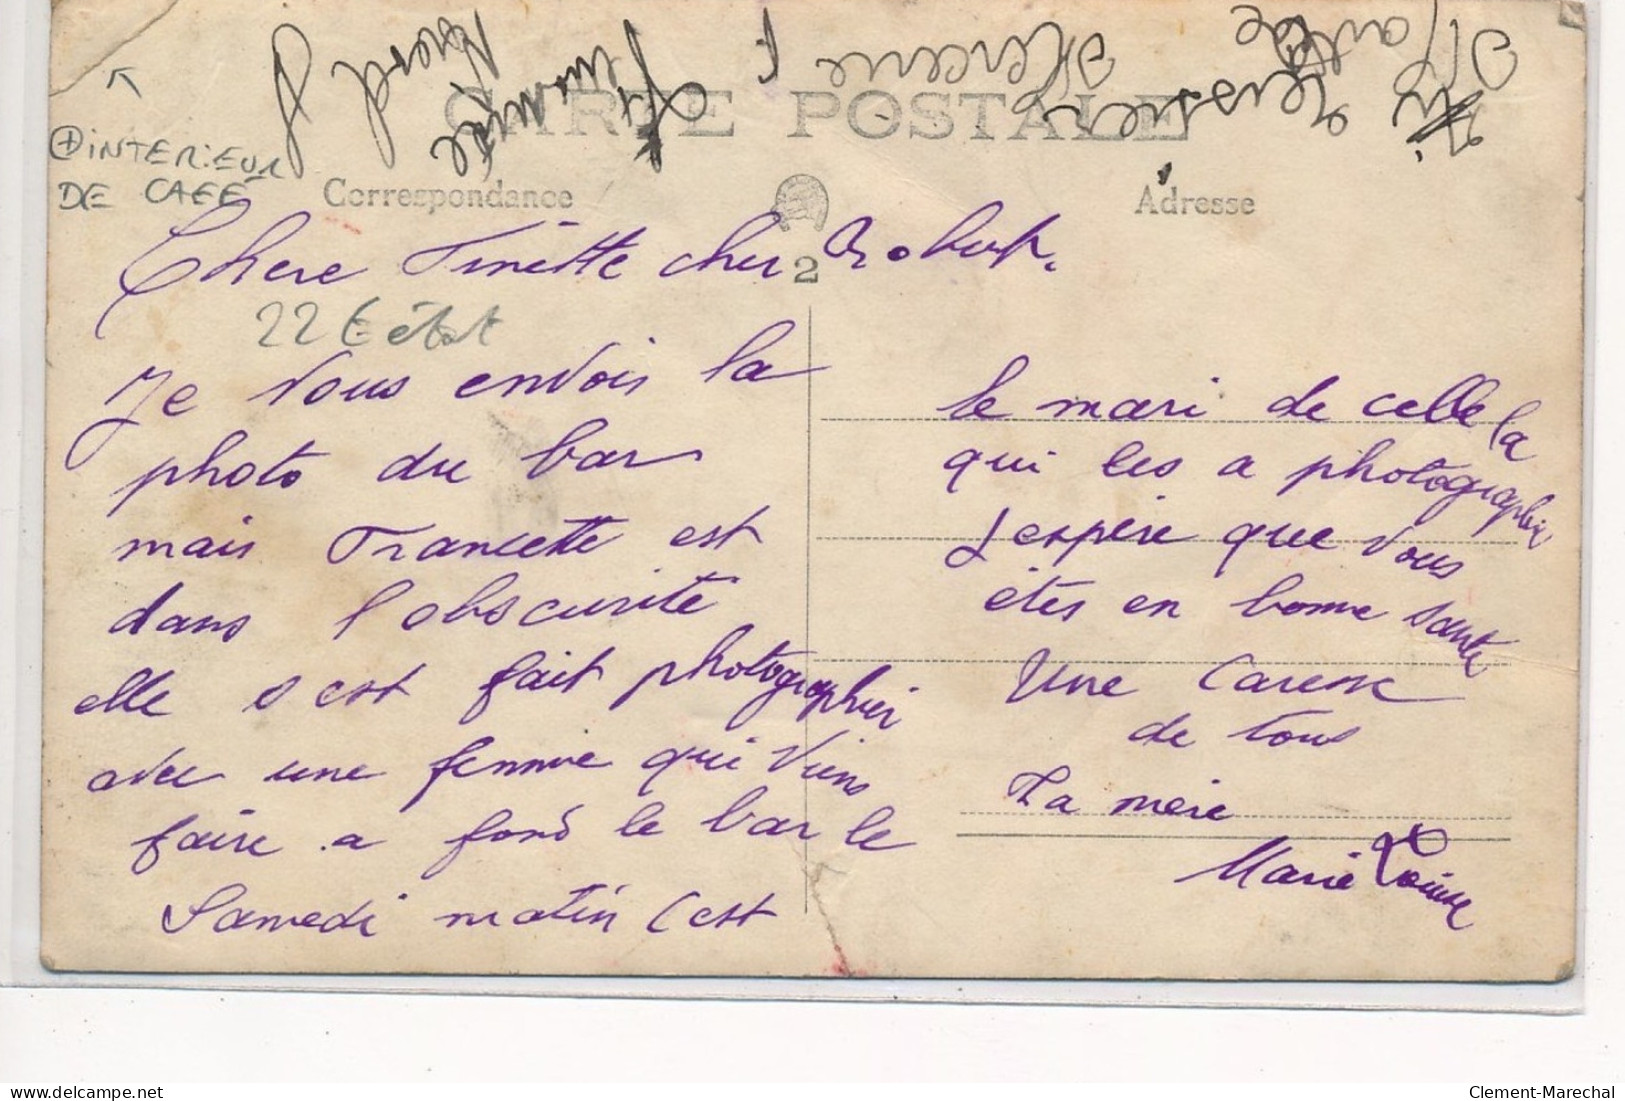 CARTE POSTALE
+ INTERIEUR
DE CAFE
Correspondance
Adresse
2
Chere Tinette cher Robert.
22 € état
Je vous envois la
photo du bar
mais Francette est
dans l obscurité
elle s est fait photographier
avec une femme qui viens
faire a fond le bar le
Samedi matin C est
le mari de celle la
qui les a photographier
J espère que vous
êtes en bonne santé
Une Caresse
de tous
La mère
Marie Louise
Clement-Marechal